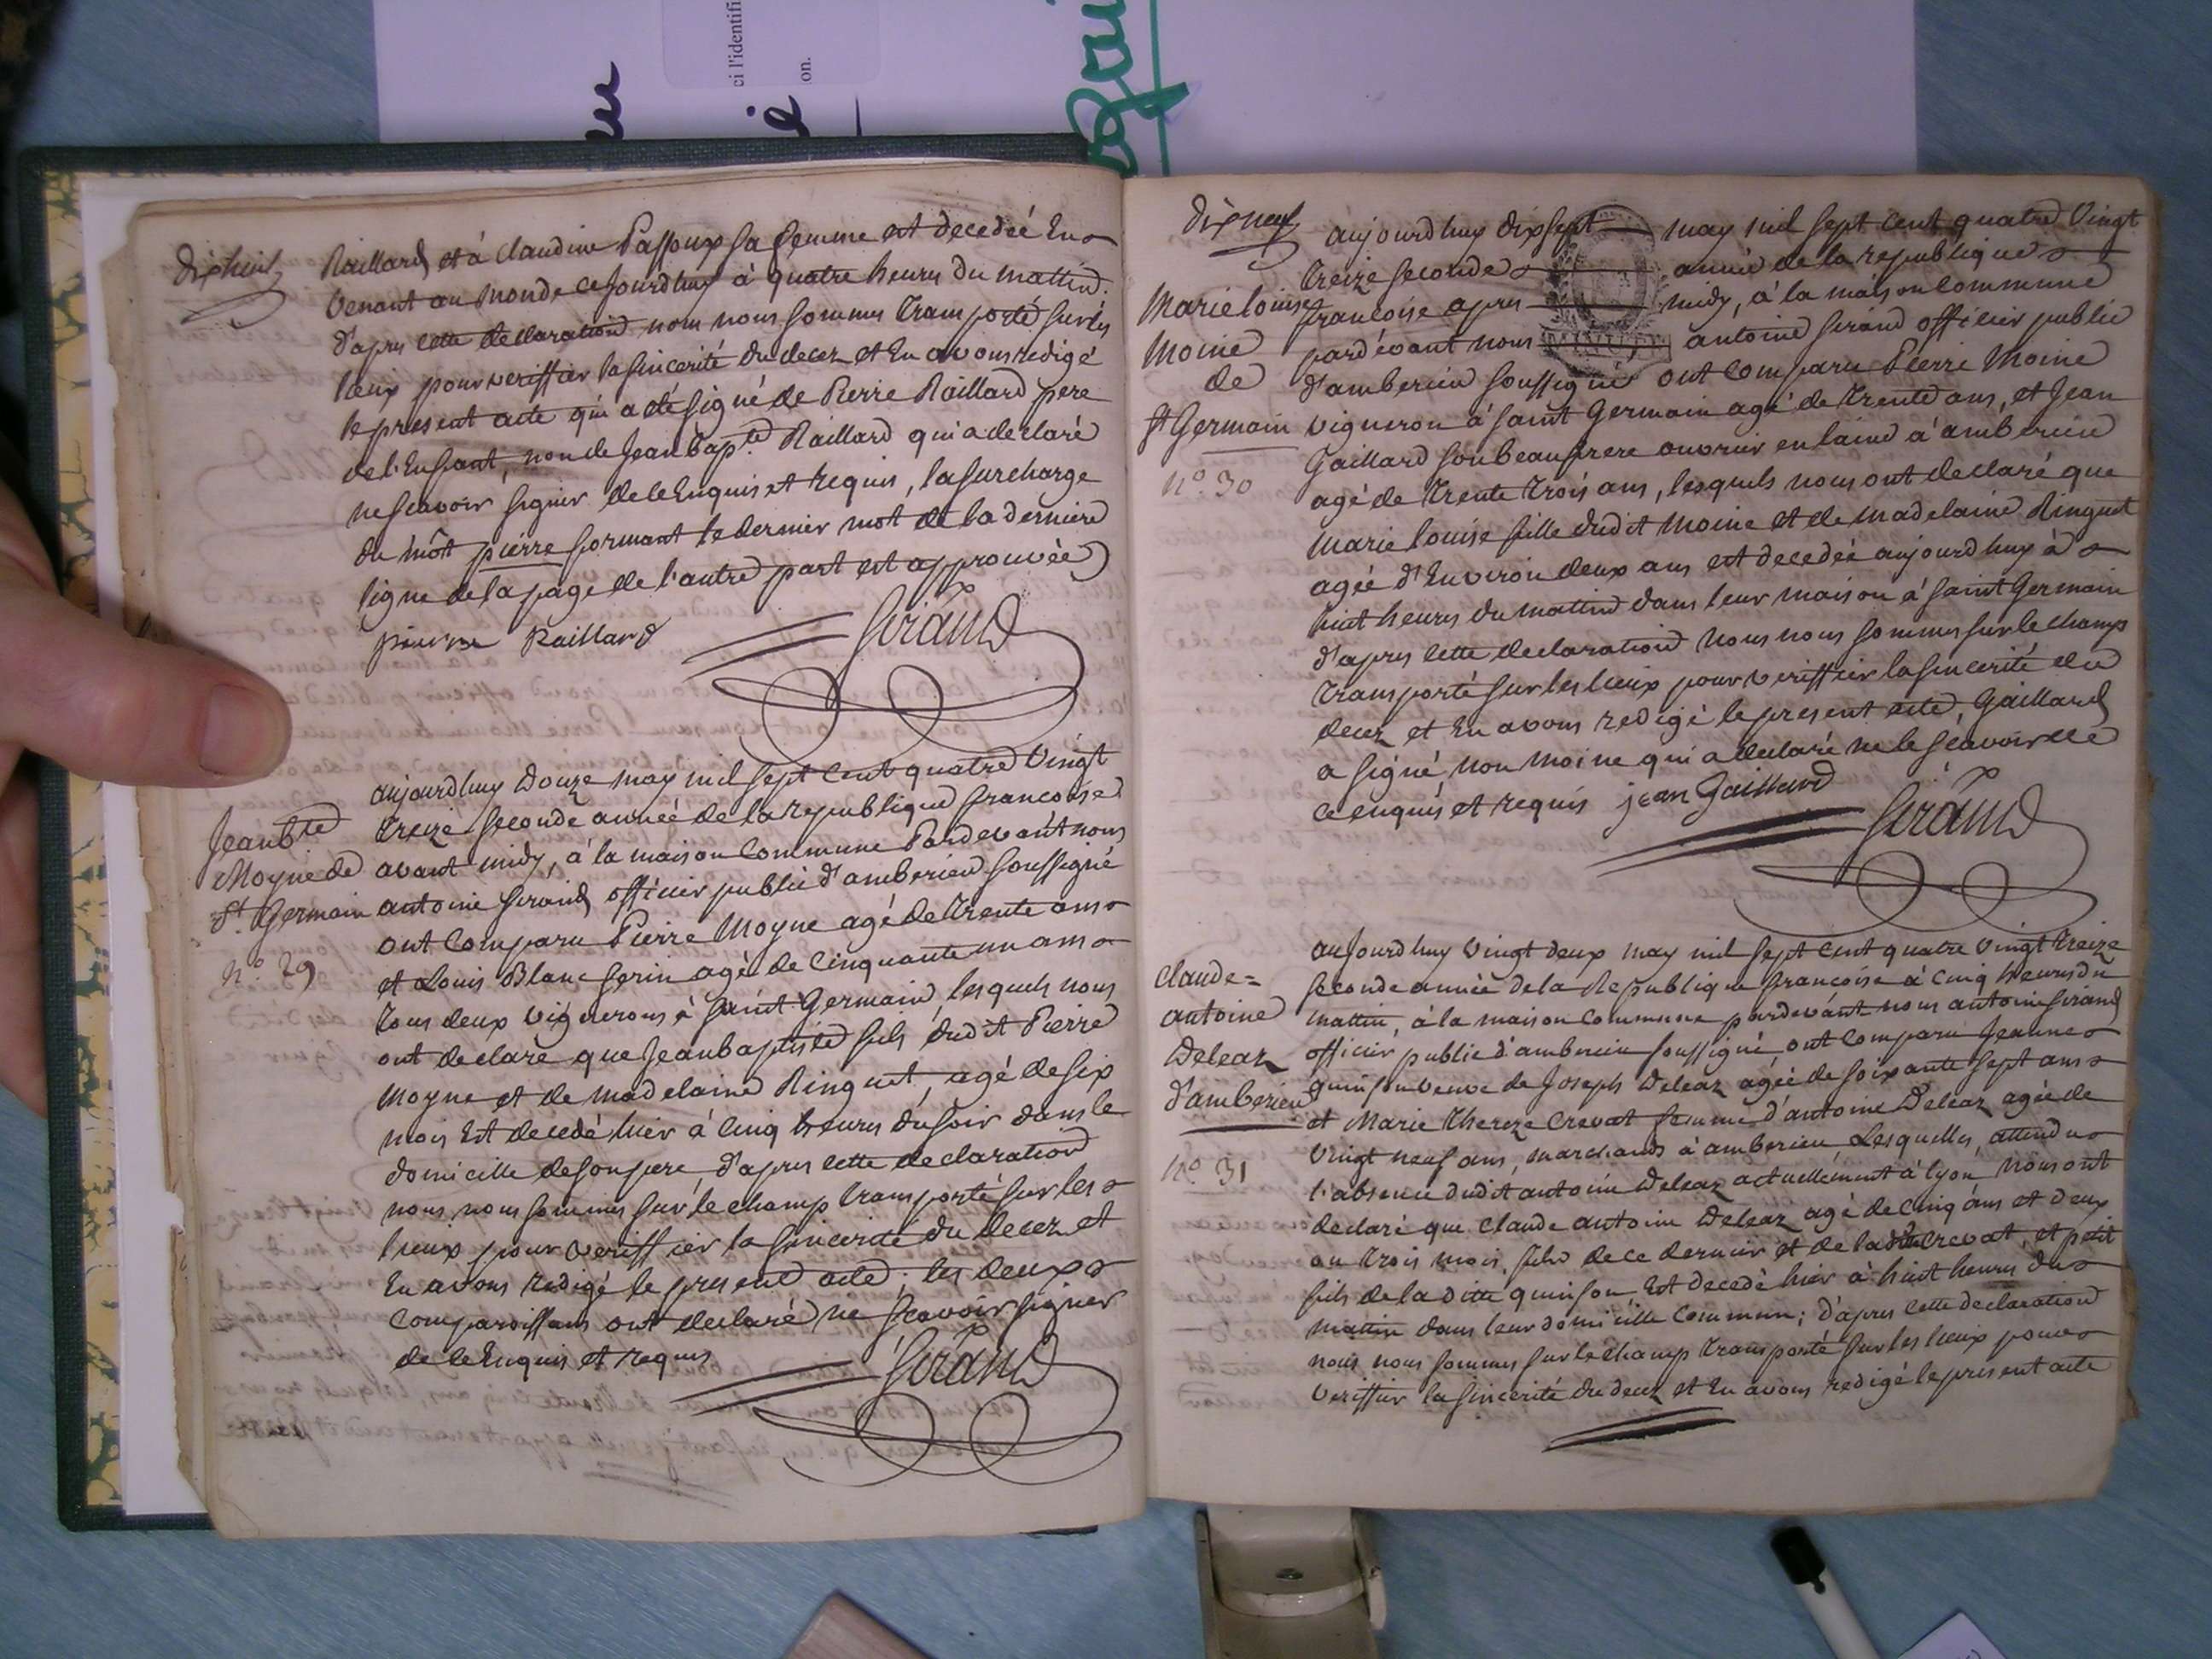 ci l'identifi
on.
dixhuit
Raillard et à Claudine Passoux sa femme est decedéé En
venant au monde cejourdhuy à quatre heures du mattin.
d'apres cette declaration nous nous sommes transporté sur les
lieux pour veriffier la sincerité du decez et En avons redigé
le present acte qui a été signé de Pierre Raillard pere
de l'Enfant, non de Jean Bapte. Raillard qui a declaré
ne scavoir signer de ce Enquis et requis, la surcharge
du môt pierre formant le dernier mot de la derniere
ligne de la page de l'autre part est approuvéé
pierre Raillard
Sirand
Jean Bte
Moyne de
St. Germain
n°. 29
aujourdhuy Douze may mil sept cent quatre vingt
treize seconde année de la republique francoise
avant midy, à la maison Commune Pardevant nous
antoine Sirand officier public d'amberieu soussigné
ont comparu Pierre Moyne agé de trente ans
et Louis Blanc serin agé de cinquante un ans
tous deux vignerons à saint Germain, lesquels nous
ont declaré que Jean baptiste fils dudit Pierre
Moyne et de madelaine Ringuet, agé de six
mois Est decedé hier à cinq heures du soir dans le
domicille de son pere, d'apres cette declaration
nous nous sommes sur le champ transporté sur les
lieux pour veriffier la sincerité du decez et
En avons redigé le present acte. les deux
comparoissans ont declaré ne scavoir signer
de ce Enquis et requis
Sirand
dixneuf
Marie louise
Moine
de
St Germain
n°. 30
aujourdhuy dixsept may mil sept cent quatre vingt
treize seconde année de la republique
francoise apres midy, à la maison commune
pardevant nous antoine Sirand officier public
d'amberieu soussigné ont comparu Pierre Moine
vigneron à saint Germain agé de trente ans, et Jean
Gaillard son beaufrere ouvrier en laine à amberieu
agé de trente trois ans, lesquels nous ont declaré que
Marie louise fille dudit Moine et de madelaine Ringuet
agéé d'Environ deux ans est decedéé aujourdhuy à
huit heures du mattin dans leur maison à saint Germain
d'apres cette declaration nous nous sommes sur le champ
transporté sur les lieux pour veriffier la sincerité du
decez et En avons redigé le present acte, Gaillard
a signé non Moine qui a declaré ne le scavoir de
ce enquis et requis jean Gaillard
Sirand
Claude=
antoine
Deleaz
d'amberieu
n°. 31
aujourdhuy vingt deux may mil sept cent quatre vingt treize
seconde année de la Republique francoise à cinq heures du
mattin, à la maison commune pardevant nous antoine Sirand
officier public d'amberieu soussigné, ont comparu Jeanne
quinson veuve de Joseph Deleaz agéé de soixante sept ans
et Marie Thereze Crevat femme d'antoine Deleaz agéé de
vingt neuf ans, marchands à amberieu, Lesquelles, attendu
l'absence dudit antoine Deleaz actuellement à lyon nous ont
declaré que Claude antoine Deleaz agé de cinq ans et deux
ou trois mois, fils de ce dernier et de ladite Crevat, et petit
fils de la ditte quinson Est decedé hier à huit heures du
mattin dans leur domicille commun; d'apres cette declaration
nous nous sommes sur le champ transporté sur les lieux pour
veriffier la sincerité du decez et En avons redigé le present acte